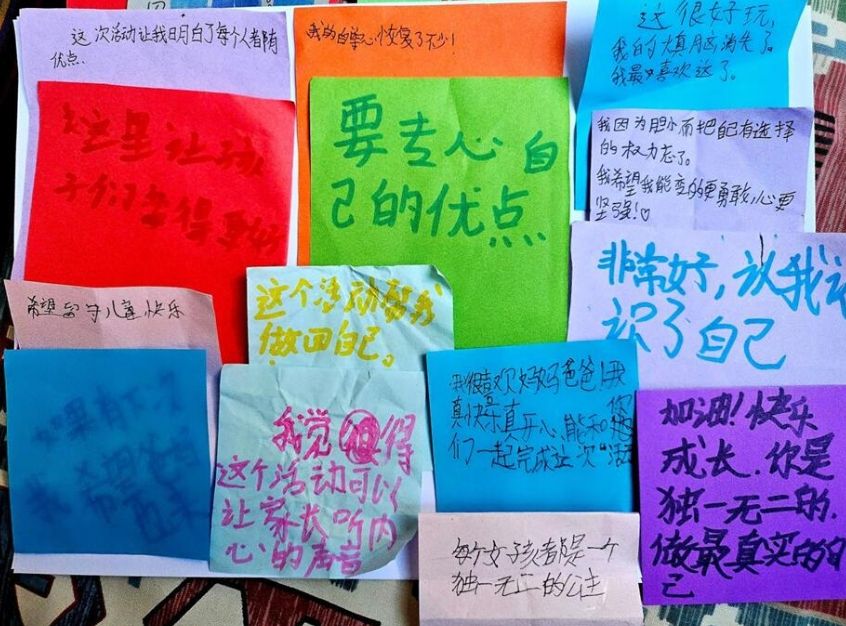 这次活动让我明白了每个人都有
优点.
我的自学心恢复了不少!
这很好玩,
我的烦脑消失了。
我最喜欢这了。
这里让孩
子们
要专心自
己的优点
我因为胆小而把自己有选择
的权力忘了。
我希望我能变的更勇敢,心更
坚强!♡
非常好,让我认
识了自己
希望留守儿童快乐
这个活动帮我
做回自己。
如果有下次
我希望爸爸
我很喜欢妈妈爸爸!我
真快乐真开心,能和他
们一起完成这次“活
加油!快乐
成长.你是
独一无二的.
做最真实的自
己
我觉得
这个活动可以
让家长听内
心的声音
每个女孩者都是一个
独一无二的公主